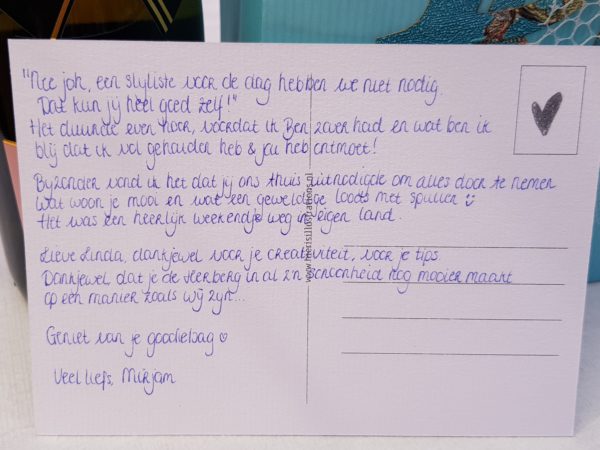 "Nee joh, een styliste voor de dag hebben we niet nodig.
Dat kun jij heel goed zelf!"
Het duurde even hoor, voordat ik Ben zover had en wat ben ik
blij dat ik vol gehouden heb & jou heb ontmoet!
Byzonder vond ik het dat jij ons thuis uitnodigde om alles door te nemen
Wat woon je mooi en wat een geweldige loods met spullen
Het was een heerlijk weekendje weg in eigen land.
Lieve Linda, dankjewel voor je creativiteit, voor je tips.
Dankjewel, dat je de Veerberg in al z'n schoonheid nog mooier maakt
op een manier zoals wij zyn...
Geniet van je goodiebag
Veel liefs, Mirjam